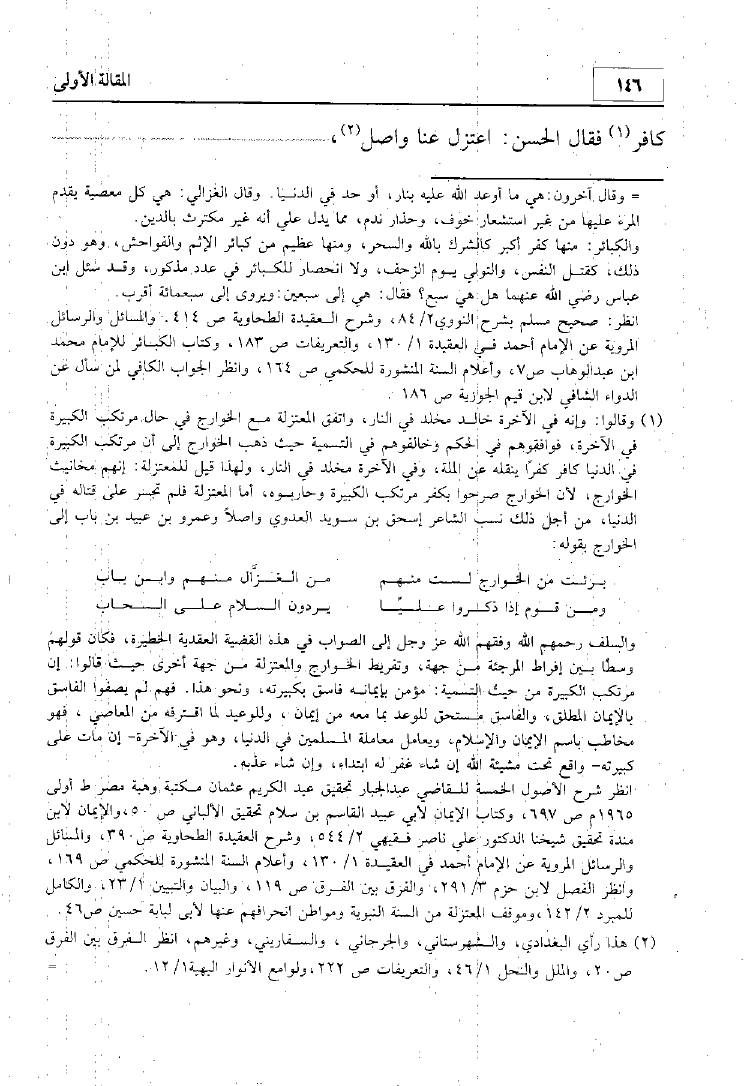 ١٤٦
المقالة الأولى
كافر (١) فقال الحسن: اعتزل عنا واصل(٢)،
= وقال آخرون: هي ما أوعد الله عليه بنار، أو حد في الدنيا. وقال الغزالي: هي كل معصية يقدم
المرء عليها من غير استشعار خوف، وحذار ندم، مما يدل علي أنه غير مكترث بالدين.
والكبائر: منها كفر أكبر كالشرك بالله والسحر، ومنها عظيم من كبائر الإثم والفواحش، وهو دون
ذلك، كقتل النفس، والتولي يوم الزحف، ولا انحصار للكبائر في عدد مذكور، وقد سئل ابن
عباس رضي الله عنهما هل هي سبع؟ فقال: هي إلى سبعين: ويروى إلى سبعمائة أقرب.
انظر: صحيح مسلم بشرح النووي ٨٤/٢، وشرح العقيدة الطحاوية ص ٤١٤. والمسائل والرسائل
المروية عن الإمام أحمد في العقيدة ١٣٠/١، والتعريفات ص ١٨٣، وكتاب الكبائر للإمام محمد
ابن عبدالوهاب ص٧، وأعلام السنة المنشورة للحكمي ص ١٦٤، وانظر الجواب الكافي لمن سأل عن
الدواء الشافي لابن قيم الجوزية ص ١٨٦ .
(١) وقالوا: وإنه في الآخرة خالد مخلد في النار، واتفق المعتزلة مع الخوارج في حال مرتكب الكبيرة
في الآخرة، فوافقوهم في الحكم وخالفوهم في التسمية حيث ذهب الخوارج إلى أن مرتكب الكبيرة
في الدنيا كافر كفرًا ينقله عن الملة، وفي الآخرة مخلد في النار، ولهذا قيل للمعتزلة: إنهم مخانيث
الخوارج، لأن الخوارج صرحوا بكفر مرتكب الكبيرة وحاربوه، أما المعتزلة فلم تجسر على قتاله في
الدنيا، من أجل ذلك نسب الشاعر إسحق بن سويد العدوي واصلاً وعمرو بن عبيد بن باب إلى
الخوارج بقوله:
برئت من الخوارج لست منهم من الغزَّال منهم وابن باب
ومن قوم إذا ذكروا عليًّا يردون السلام على السحاب
والسلف رحمهم الله وفقهم الله عز وجل إلى الصواب في هذه القضية العقدية الخطيرة، فكان قولهم
وسطًا بين إفراط المرجئة من جهة، وتفريط الخوارج والمعتزلة من جهة أخرى حيث قالوا: إن
مرتكب الكبيرة من حيث التسمية: مؤمن بإيمانه فاسق بكبيرته، ونحو هذا. فهم لم يصفوا الفاسق
بالإيمان المطلق، والفاسق مستحق للوعد بما معه من إيمان ، وللوعيد لما اقترفه من المعاصي ، فهو
مخاطب باسم الإيمان والإسلام، ويعامل معاملة المسلمين في الدنيا، وهو في الآخرة- إن مات على
كبيرته- واقع تحت مشيئة الله إن شاء غفر له ابتداء، وإن شاء عذبه.
انظر شرح الأصول الخمسة للقاضي عبدالجبار تحقيق عبد الكريم عثمان مكتبة وهبة مصر ط أولى
١٩٦٥م ص ٦٩٧، وكتاب الإيمان لأبي عبيد القاسم بن سلام تحقيق الألباني ص ٥٠، والإيمان لابن
مندة تحقيق شيخنا الدكتور علي ناصر فقيهي ٥٤٤/٢، وشرح العقيدة الطحاوية ص ٣٩٠، والمسائل
والرسائل المروية عن الإمام أحمد في العقيدة ١٣٠/١، وأعلام السنة المنشورة للحكمي ص ١٦٩،
وانظر الفصل لابن حزم ٢٩١/٣، والفرق بين الفرق ص ١١٩، والبيان والتبيين ٢٣/١، والكامل
للمبرد ١٤٢/٢، وموقف المعتزلة من السنة النبوية ومواطن انحرافهم عنها لأبى لبابة حسين ص٤٦.
(٢) هذا رأي البغدادي، والشهرستاني، والجرجاني ، والسفاريني، وغيرهم، انظر الفرق بين الفرق
ص٢٠، والملل والنحل ٤٦/١، والتعريفات ص ٢٢٢، ولوامع الأنوار البهية١٢/١. =